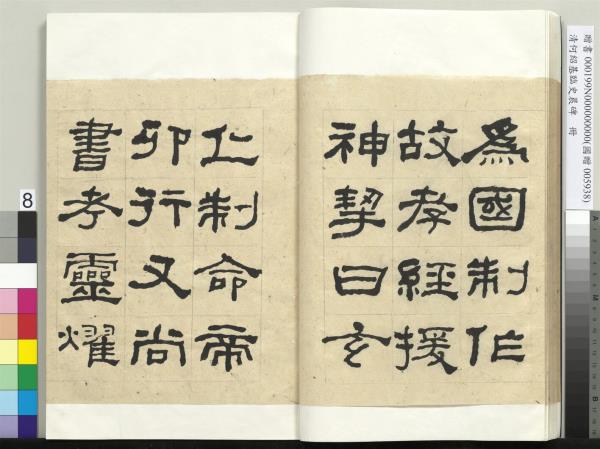 為國制作
故孝經援
神挈曰玄
仁制命帝
卯行又尚
書考靈燿
贈書 000199N000000000(國贈 005938)
清何紹基臨史晨碑 冊
8